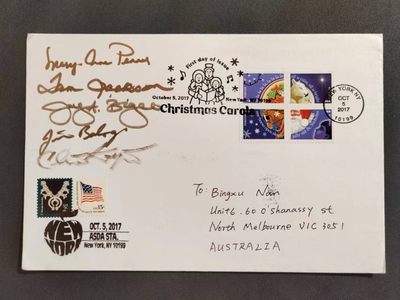 First day of issue
October 5, 2017
New York, NY 10199
Christmas Carols
NEW YORK NY
OCT
5
2017
10199
Mary-Ann Penny
Tom Jackson
To:
Bingxu Nan
Unit 6. 60 O'shanassy st
North Melbourne VIC 3051
AUSTRALIA
15c
NEW YORK
OCT. 5, 2017
ASDA STA.
New York, NY 10199